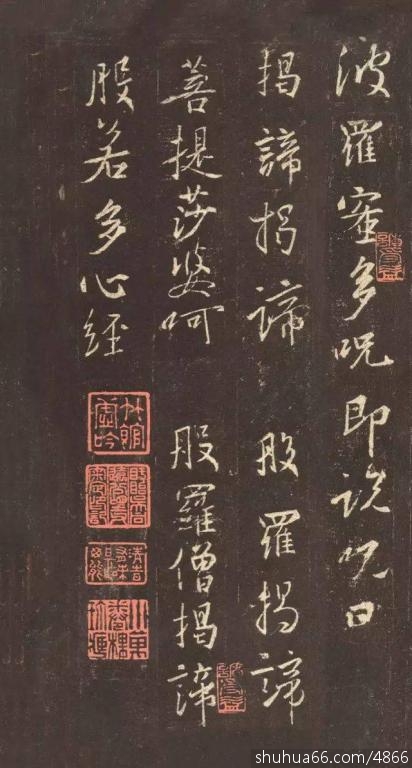 波羅蜜多呪即說呪曰
揭諦揭諦 般羅揭諦
菩提莎婆呵 般羅僧揭諦
般若多心經
shuhua66.com/4866